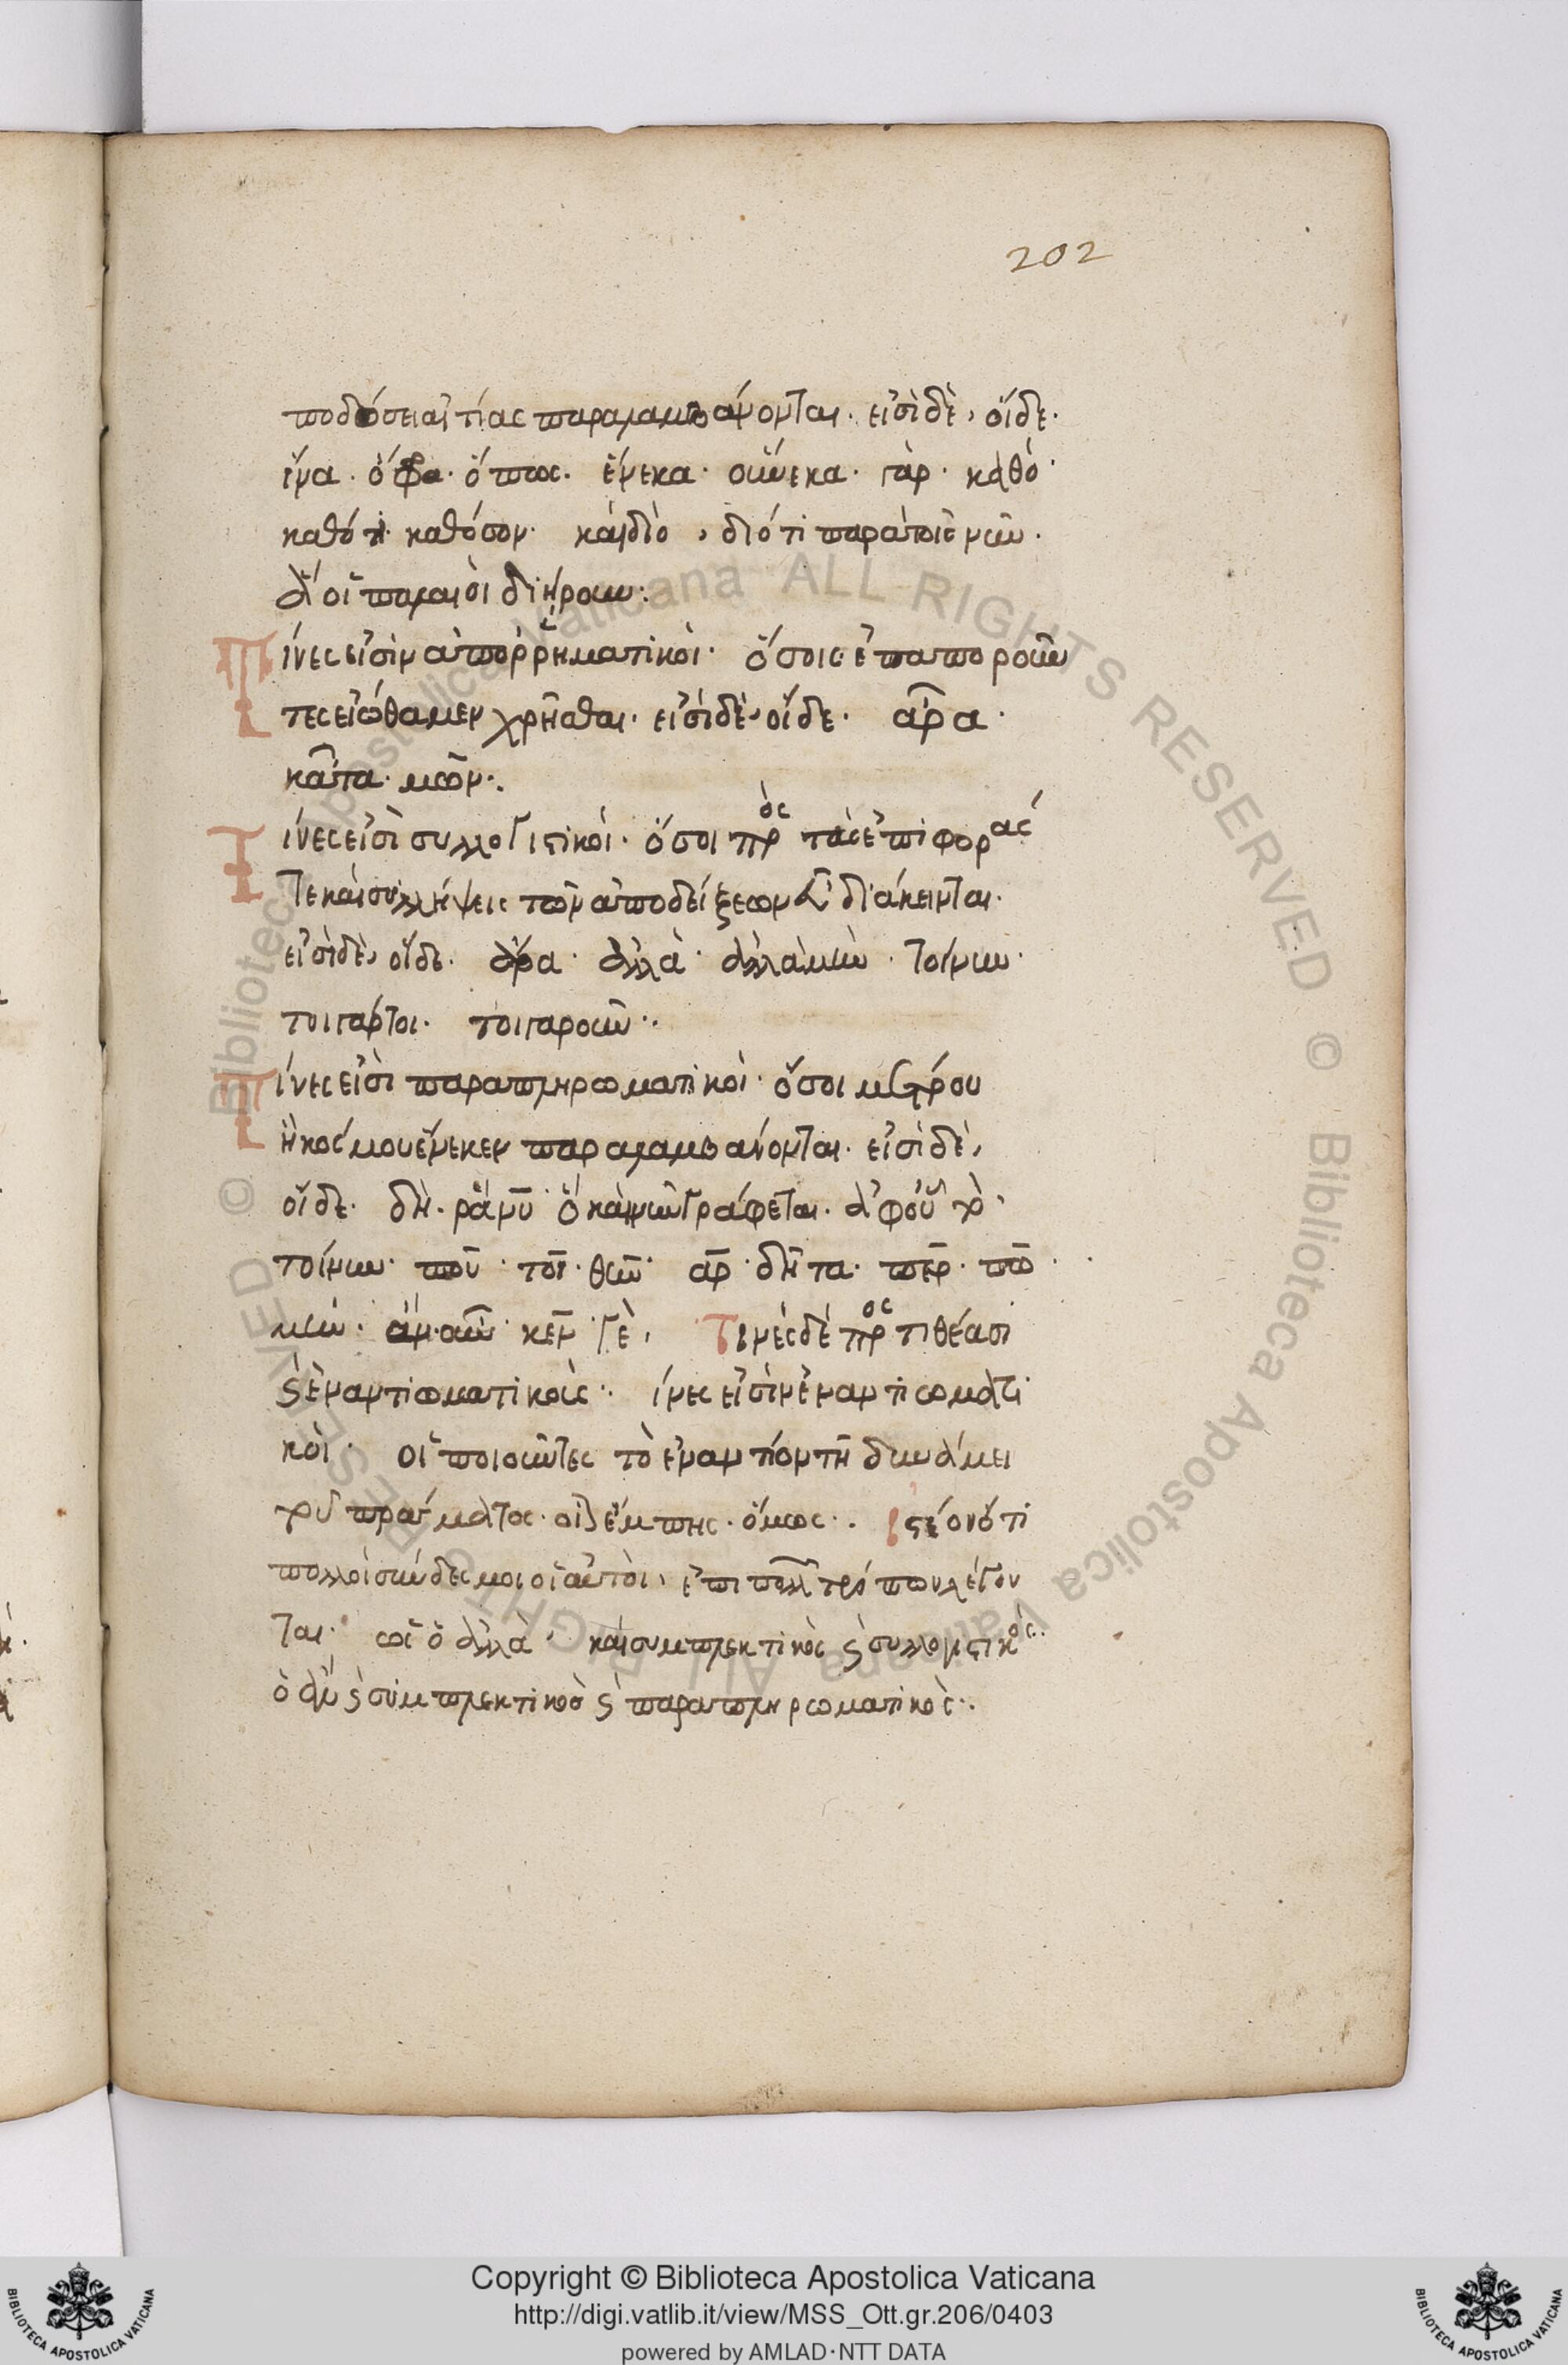 202
ποδόσει αἰτίας παραλαμβάνονται· εἰσὶ δὲ, οἵδε·
ἵνα· ὄφρα· ὅπως· ἕνεκα· οὕνεκα· γὰρ· καθό·
καθότι· καθόσον· καὶ διὸ, διότι παρὰ τοῖς νῦν·
ἀλλ' οἱ παλαιοὶ διῄρουν:
Τίνες εἰσὶν ἀπορρηματικοί· ὅσοις ἐπαποροῦν
τες εἰώθαμεν χρῆσθαι· εἰσὶ δὲ, οἵδε· ἆρα·
κᾆτα· μῶν·.
Τίνες εἰσὶ συλλογιστικοί· ὅσοι πρὸς τὰς ἐπιφοράς
τε καὶ συλλήψεις τῶν ἀποδείξεων εὖ διάκεινται·
εἰσὶ δὲ, οἵδε· ἄρα· ἀλλὰ· ἀλλὰ μὴν· τοίνυν·
τοιγάρτοι· τοιγαροῦν·.
Τίνες εἰσὶ παραπληρωματικοί· ὅσοι μέτρου
ἢ κόσμου ἕνεκεν παραλαμβάνονται· εἰσὶ δὲ,
οἵδε· δή· ῥά νυ· ὃ καὶ νῦν γράφεται· ἀφ' οὗ τὸ·
τοίνυν· που· τοι· θην· αρ· δῆτα· περ· πω·
μὴν· ἂν· αὖ· κεν· γὲ, Τινὲς δὲ προστιθέασι
καὶ ἐναντιωματικούς·. ίνες εἰσὶν ἐναντιωματι
κοὶ· οἱ ποιοῦντες τὸ ἐναντίον τῆ δυνάμει
τοῦ πράγματος· οἷον ἔμπης· ὅμως·. Ἰστέον ὅτι
πολλοὶ σύνδεσμοι οἱ αὐτοὶ, ἐπὶ πολλῶν τρόπων λέγον
ται· ὡς ὁ ἀλλὰ· καὶ συμπλεκτικὸς καὶ συλλογιστικός·
ὁ αὖ καὶ συμπλεκτικὸς καὶ παραπληρωματικός·.
Copyright © Biblioteca Apostolica Vaticana
http://digi.vatlib.it/view/MSS_Ott.gr.206/0403
powered by AMLAD·NTT DATA